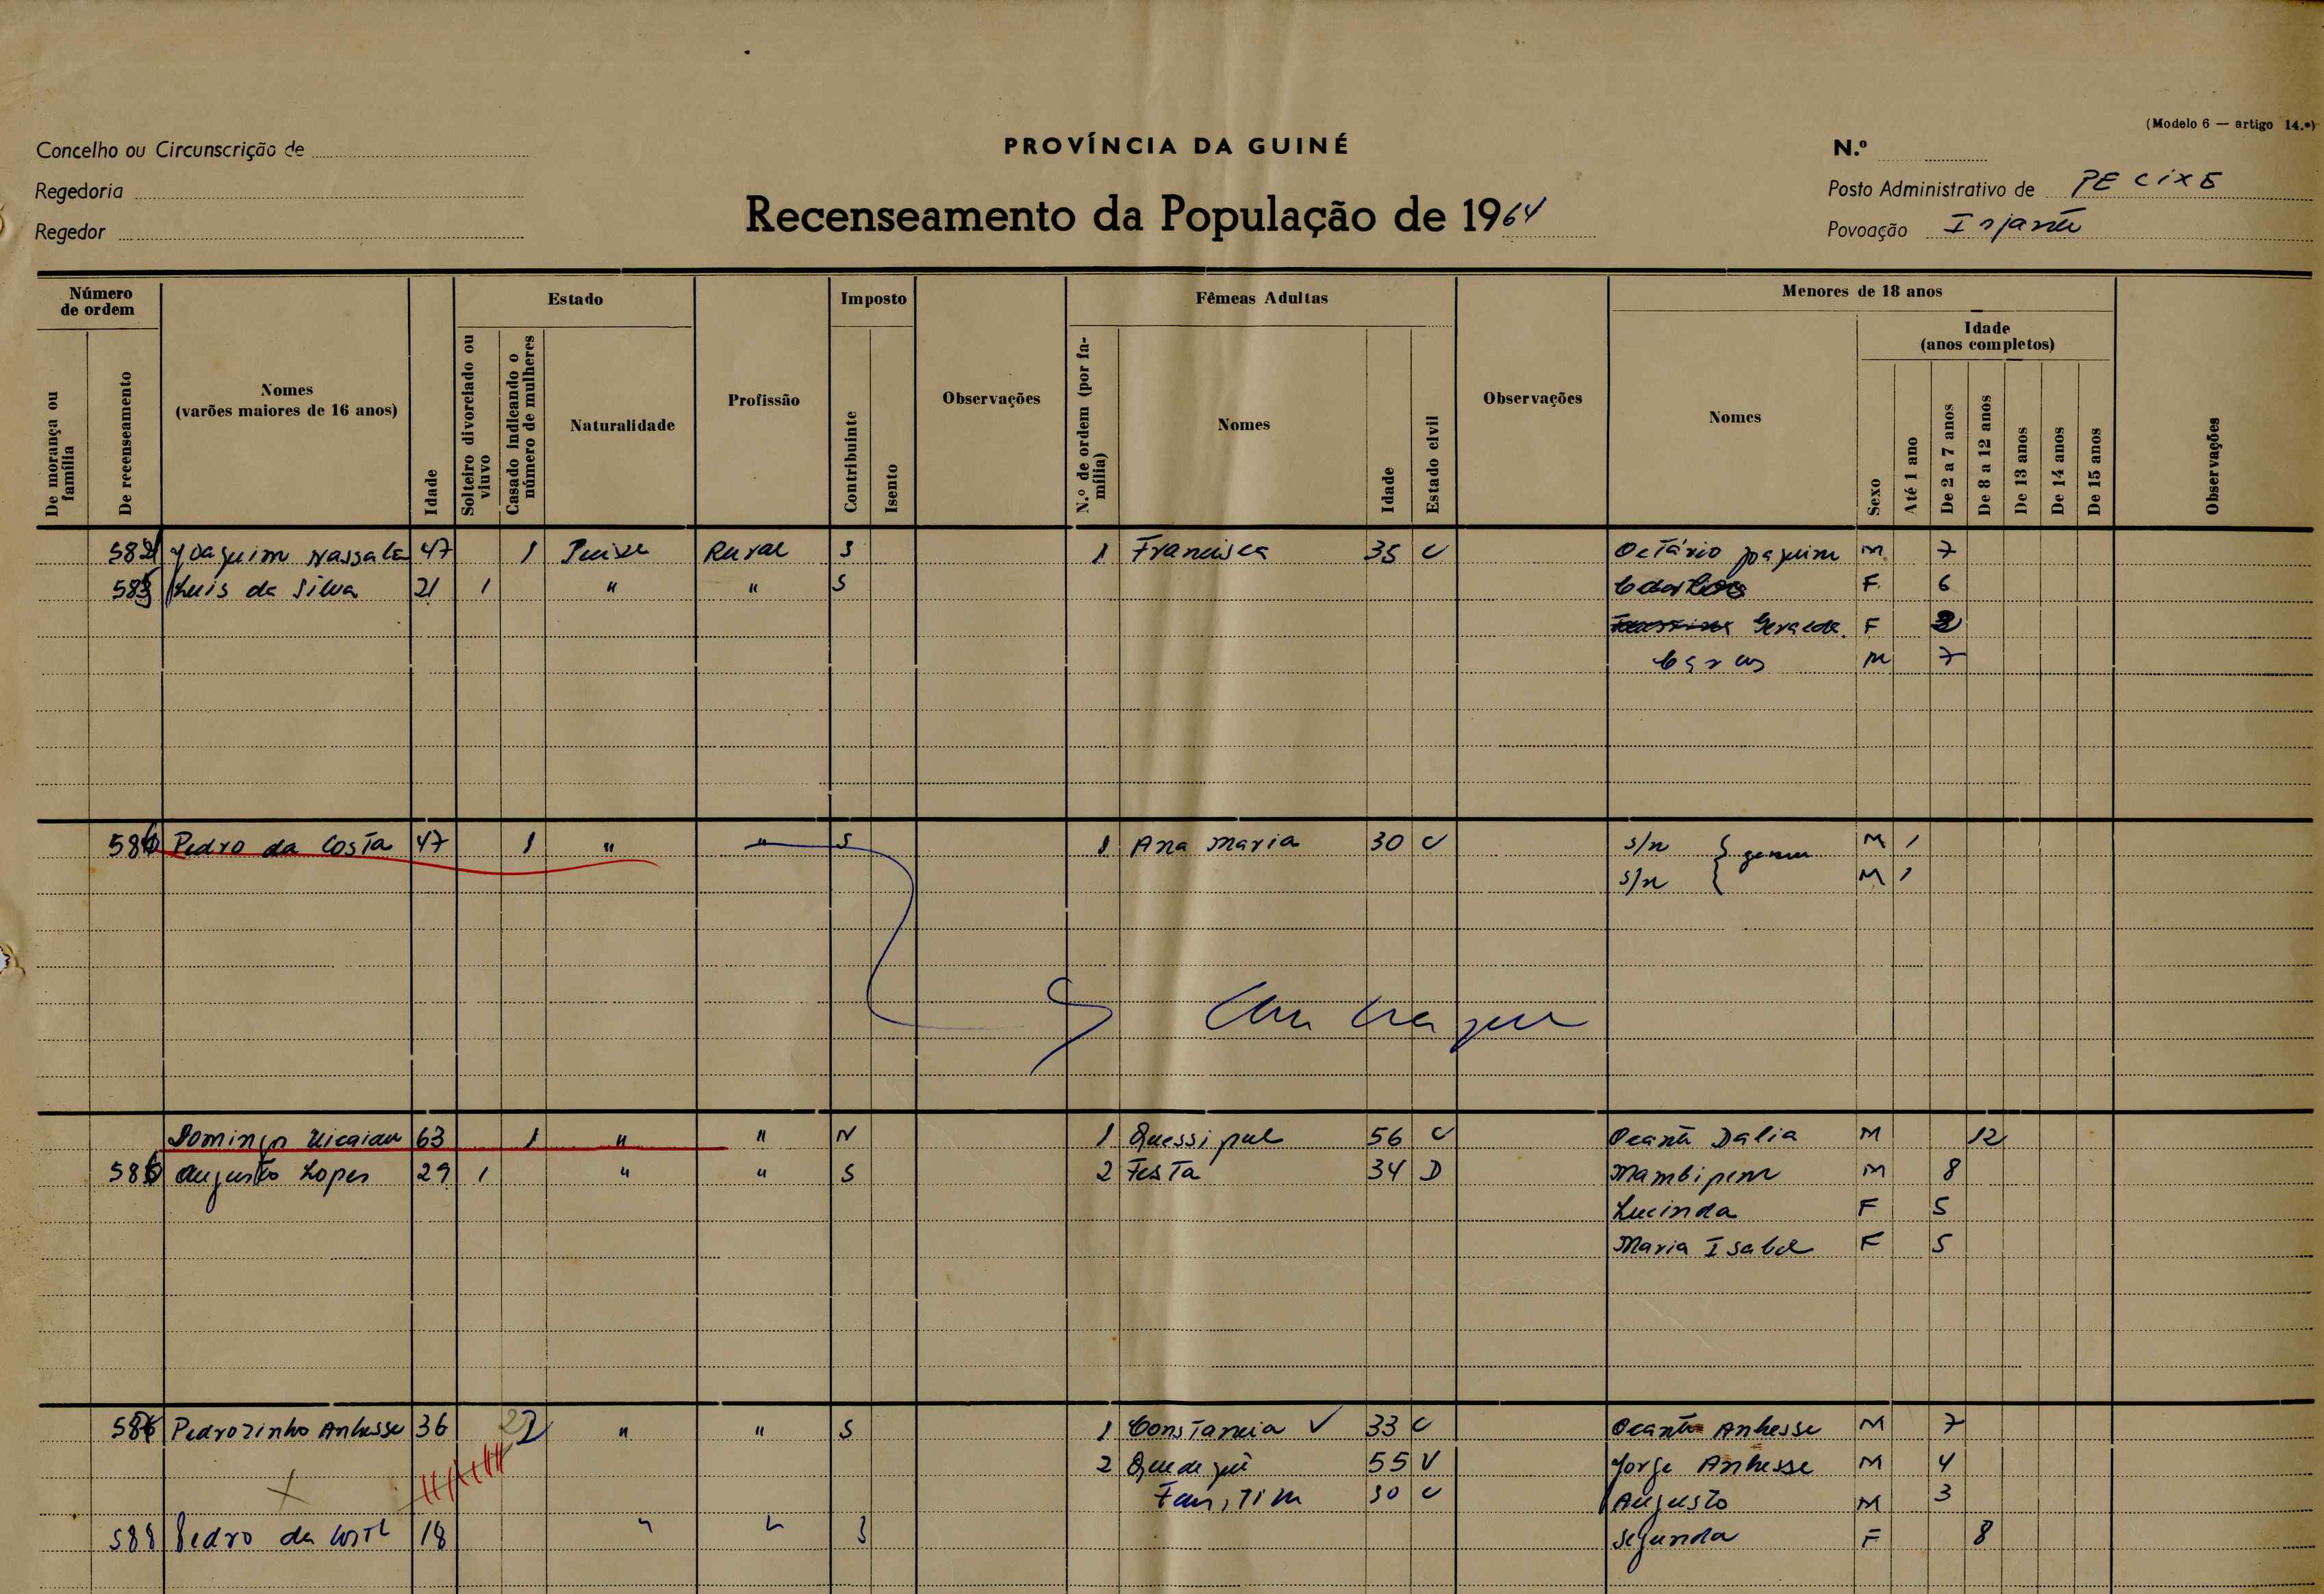 (Modelo 6 — artigo 14.º)
Concelho ou Circunscrição de
PROVÍNCIA DA GUINÉ
N.º
Regedoria
Posto Administrativo de PECIXE
Recenseamento da População de 1964
Regedor
Povoação
Número de ordem
Estado
Imposto
Fêmeas Adultas
Menores de 18 anos
De morança ou família
De recenseamento
Nomes (varões maiores de 16 anos)
Idade
Solteiro divorciado ou viuvo
Casado indicando o número de mulheres
Naturalidade
Profissão
Contribuinte
Isento
Observações
N.º de ordem (por família)
Nomes
Idade
Estado civil
Observações
Nomes
Sexo
Idade (anos completos)
Até 1 ano
De 2 a 7 anos
De 8 a 12 anos
De 13 anos
De 14 anos
De 15 anos
Observações
Joaquim Nassala 47 1 Rural S 1 Francisca 35 C Octávio Joaquim M 7
Luis da Silva 21 1 " " S F 6
F
M 7
Pedro da Costa 47 1 " " S 1 Ana Maria 30 C s/n M 1
s/n M 1
63 1 " " N 1 56 C Dalia M 12
Augusto Lopes 29 1 " " S 2 Festa 34 D M 8
Lucinda F 5
Maria Isabel F 5
Pedrozinho Anhesse 36 2 " " S 1 Constancia 33 C Anhesse M 7
2 55 V Jorge Anhesse M 4
30 C Augusto M 3
588 Pedro da Costa 18 " " S Segunda F 8